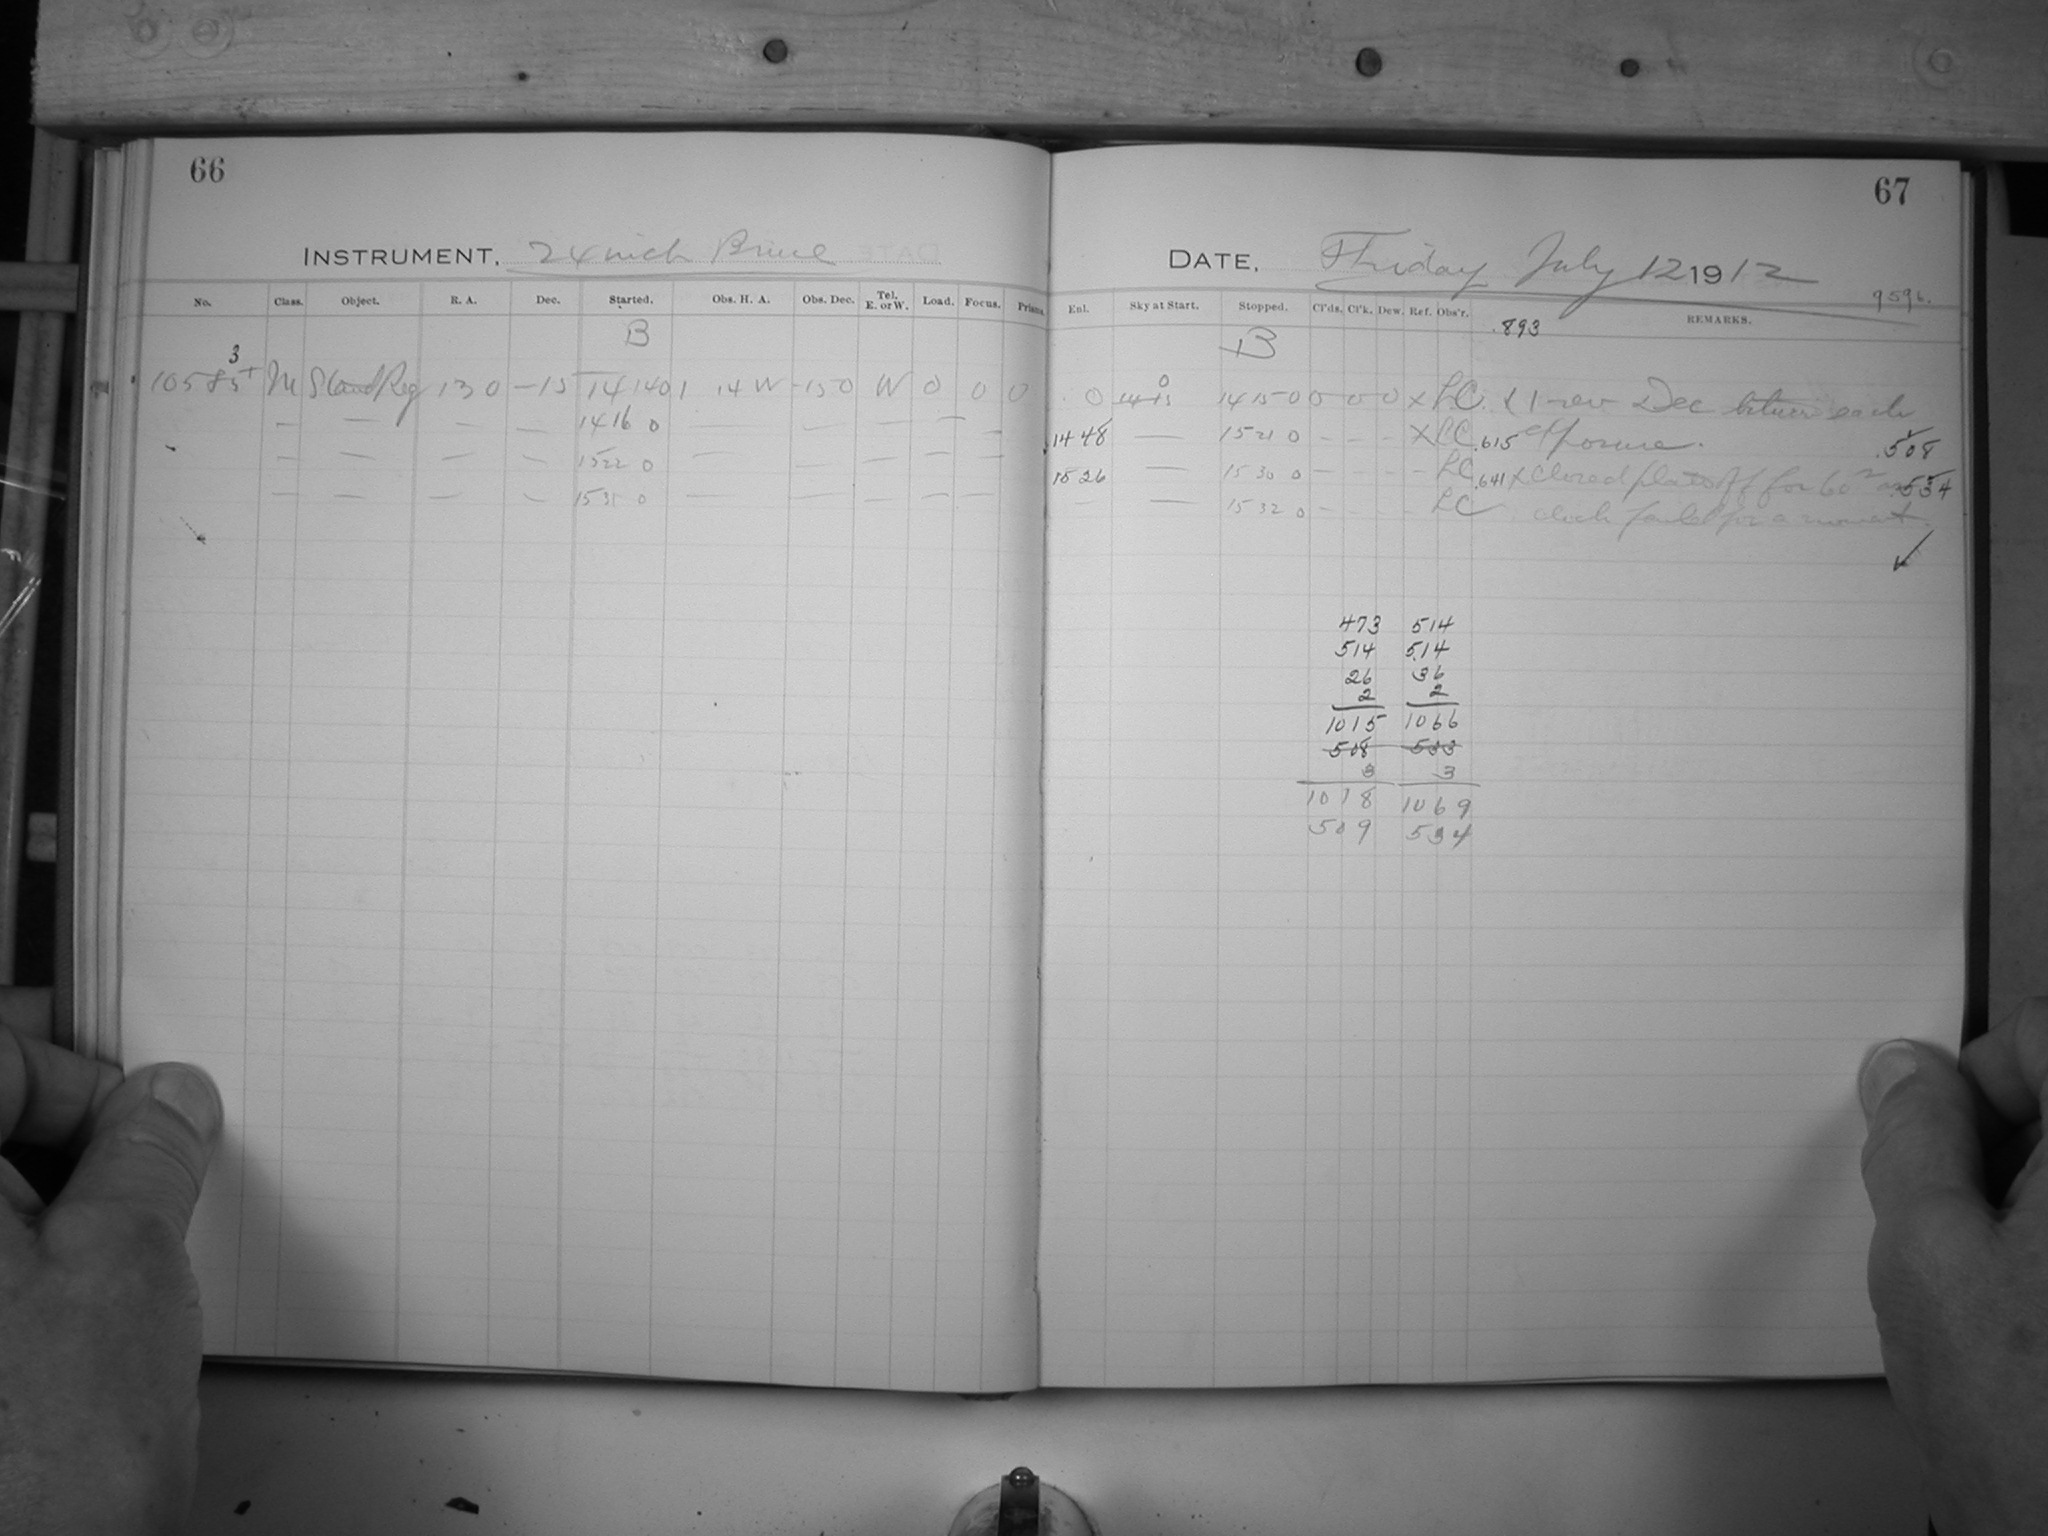 66
INSTRUMENT, 24 inch Bruce
No. Class. Object. R. A. Dec. Started. Obs. H. A. Obs. Dec. Tel. E. or W. Load. Focus. Prisms.
B
3
10585+ M Stand Reg 13 0 -15 14 14 0 1 14 W -15 0 W 0 0 0
— — — — 14 16 0 — — — — — —
— — — — 15 22 0 — — — — — —
— — — — 15 31 0 — — — — — —
67
DATE, Friday July 12 1912
9596.
Enl. Sky at Start. Stopped. Cl'ds. Cl'k. Dew. Ref. Obs'r. REMARKS.
.893
B
0
0 14 15 14 15 0 0 0 0 x LC. x 1 rev Dec between each
14 48 — 15 21 0 - - - x LC .615 exposure. .508
15 26 — 15 30 0 - - - - LC .641 x closed plate off for 60 s as .534
— 15 32 0 - - - - LC clock failed for a moment.
✓
473 514
514 514
26 36
2 2
1015 1066
508 533
3 3
1018 1069
509 534